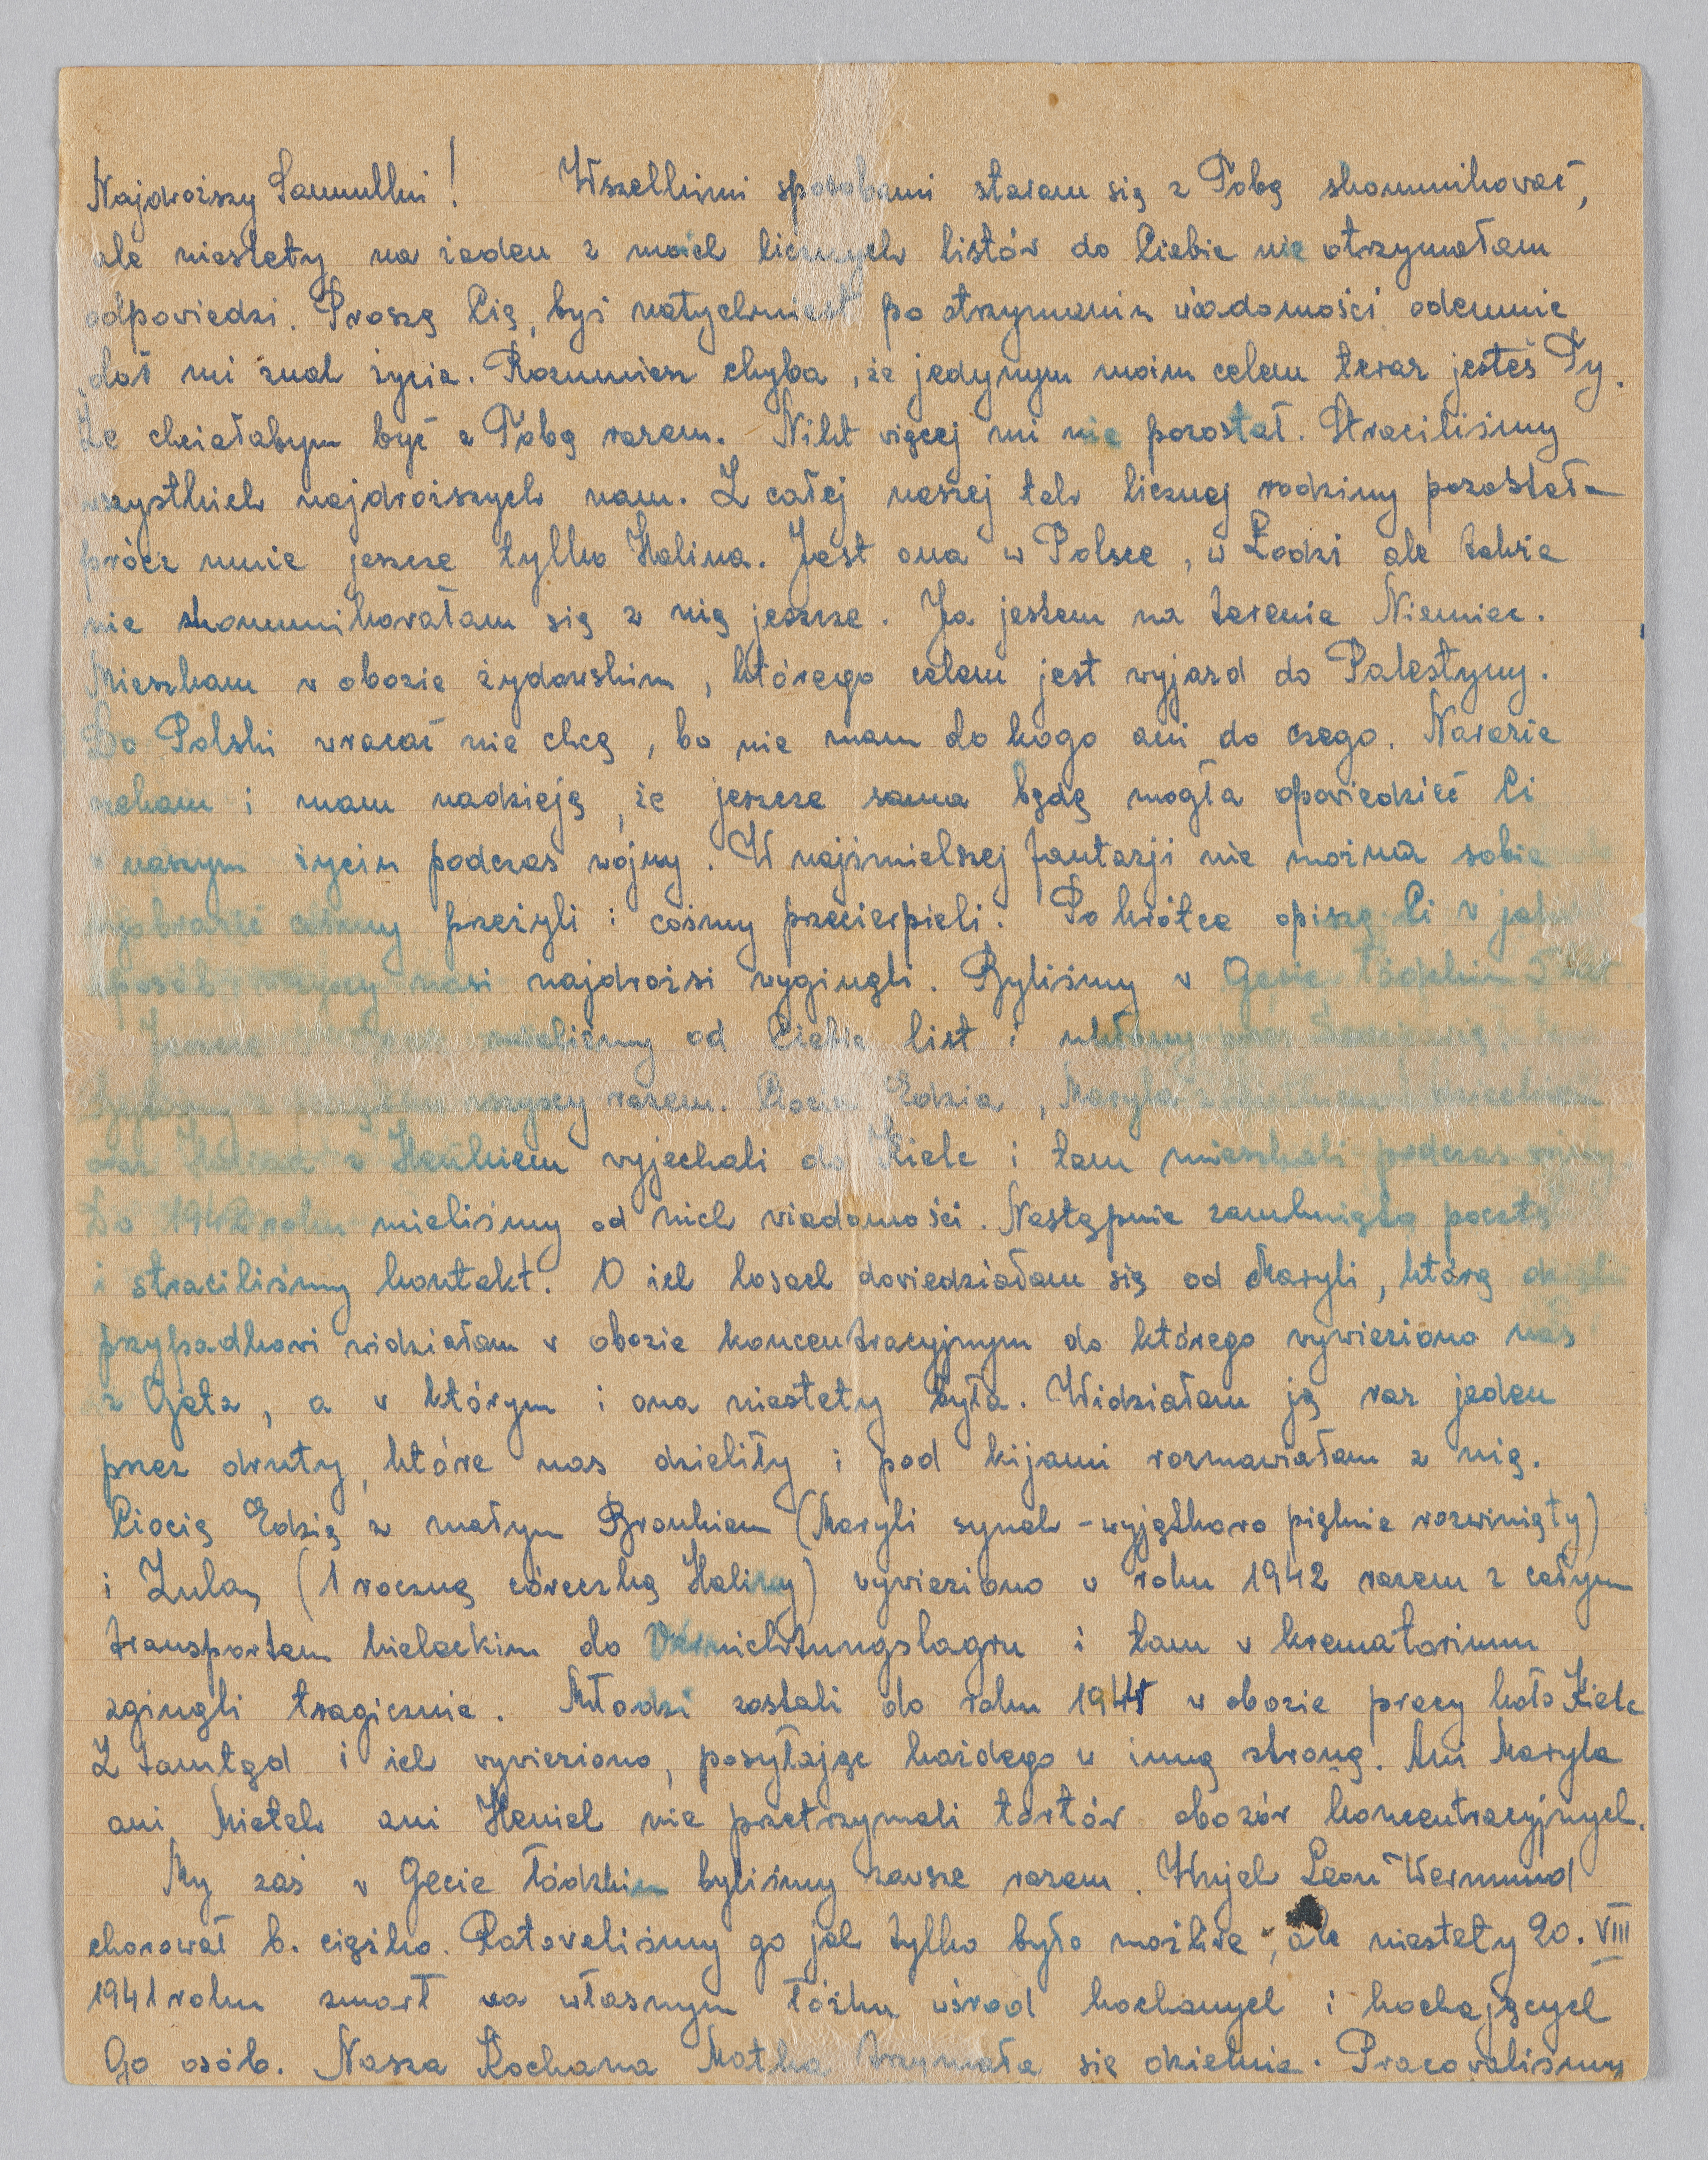 Najdroższy Samulku! Wszelkimi sposobami staram się z Tobą skomunikować,
ale niestety na żaden z moich licznych listów do Ciebie nie otrzymałam
odpowiedzi. Proszę Cię, byś natychmiast po otrzymaniu wiadomości odemnie
dał mi znak życia. Rozumiesz chyba, że jedynym moim celem teraz jesteś Ty.
Że chciałabym być z Tobą razem. Nikt więcej mi nie pozostał. Straciliśmy
wszystkich najdroższych nam. Z całej naszej tak licznej rodziny pozostała
prócz mnie jeszcze tylko Halina. Jest ona w Polsce, w Łodzi ale także
nie skomunikowałam się z nią jeszcze. Ja jestem na terenie Niemiec.
Mieszkam w obozie żydowskim, którego celem jest wyjazd do Palestyny.
Do Polski wracać nie chcę, bo nie mam do kogo ani do czego. Narazie
czekam i mam nadzieję, że jeszcze sama będę mogła opowiedzieć Ci
o naszym życiu podczas wojny. W najśmielszej fantazji nie można sobie
wyobrazić cośmy przeżyli i cośmy przecierpieli. Po krótce opiszę Ci w jaki
sposób wszyscy nasi najdrożsi wyginęli. Byliśmy w Gecie Łódzkim
mieliśmy od Ciebie list i
wszyscy razem. Ciocia Edzia, Maryla
oraz Halina z Heńkiem wyjechali do Kielc i tam mieszkali podczas wojny.
Do 1942 roku mieliśmy od nich wiadomości. Następnie zamknięto pocztę
i straciliśmy kontakt. O ich losach dowiedziałam się od Maryli, którą dzięki
przypadkowi widziałam w obozie koncentracyjnym do którego wywieziono nas
z Geta, a w którym i ona niestety była. Widziałam ją raz jeden
przez druty, które nas dzieliły i pod kijami rozmawiałam z nią.
Ciocię Edzię z małym Bronkiem (Maryli synek - wyjątkowo pięknie rozwinięty)
i Zulą (1 roczną córeczką Haliny) wywieziono w roku 1942 razem z całym
transportem kieleckim do Vernichtungslagru i tam w krematorium
zginęli tragicznie. Młodzi zostali do roku 1944 w obozie pracy koło Kielc
Z tamtąd i ich wywieziono, posyłając każdego w inną stronę. Ani Maryla
ani Mietek ani Heniek nie przetrzymali tortór obozów koncentracyjnych.
My zaś w Gecie łódzkim byliśmy zawsze razem. Wujek Leon Wermund
chorował b. ciężko. Ratowaliśmy go jak tylko było możliwe, ale niestety 20. VIII
1941 roku zmarł na własnym łóżku wśrod kochanych i kochających
Go osób. Nasza Kochana Matka trzymała się dzielnie. Pracowaliśmy